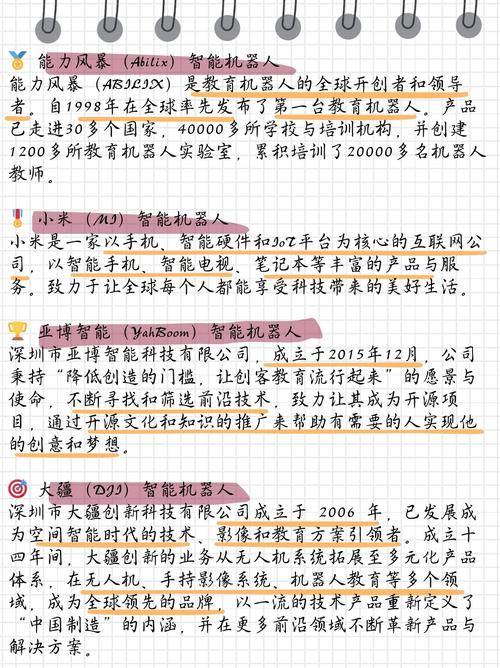 能力风暴（Abilix）智能机器人
能力风暴（ABILIX）是教育机器人的全球开创者和领导
者。自1998年在全球率先发布了第一台教育机器人。产品
已走进30多个国家，40000多所学校与培训机构，并创建
1200多所教育机器人实验室，累积培训了20000多名机器人
教师。
小米（MI）智能机器人
小米是一家以手机、智能硬件和IoT平台为核心的互联网公
司，以智能手机、智能电视、笔记本等丰富的产品与服
务。致力于让全球每个人都能享受科技带来的美好生活。
亚博智能（YahBoom）智能机器人
深圳市亚博智能科技有限公司，成立于2015年12月，公司
秉持“降低创造的门槛，让创客教育流行起来”的愿景与
使命，不断寻找和筛选前沿技术，致力让其成为开源项
目，通过开源文化和知识的推广来帮助有需要的人实现他
的创意和梦想。
大疆（DJI）智能机器人
深圳市大疆创新科技有限公司成立于 2006 年，已发展成
为空间智能时代的技术、影像和教育方案引领者。成立十
四年间，大疆创新的业务从无人机系统拓展至多元化产品
体系，在无人机、手持影像系统、机器人教育等多个领
域，成为全球领先的品牌，以一流的技术产品重新定义了
“中国制造”的内涵，并在更多前沿领域不断革新产品与
解决方案。